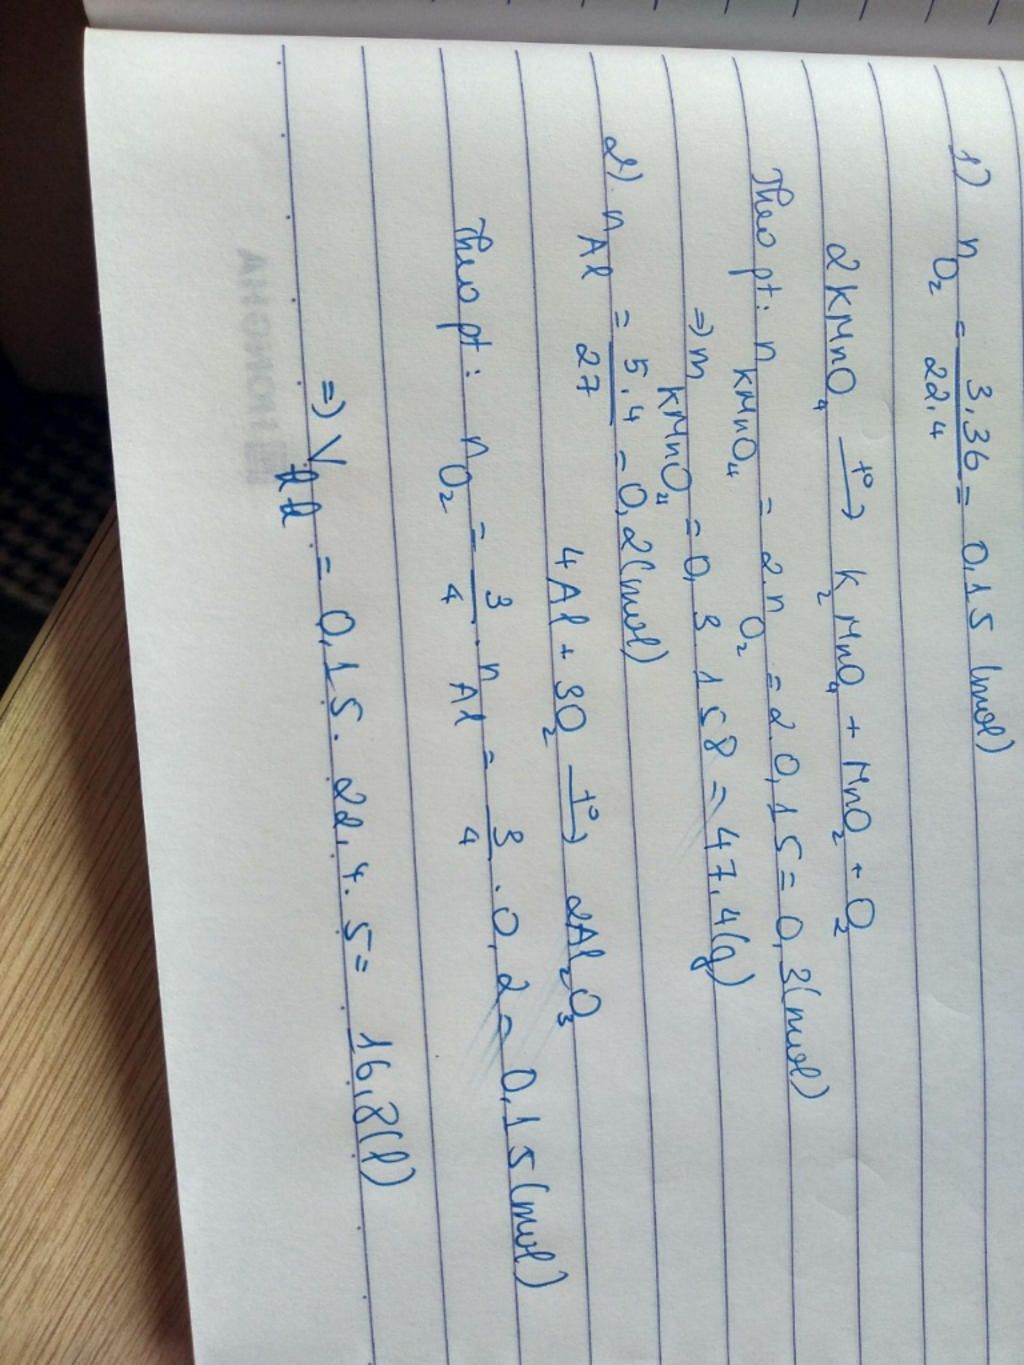 1) nO₂ = 3,36/22,4 = 0,15 (mol)
2KMnO₄ —t°→ K₂MnO₄ + MnO₂ + O₂
Theo pt: nKMnO₄ = 2.nO₂ = 2.0,15 = 0,3(mol)
=> mKMnO₄ = 0,3.158 = 47,4(g)
2). nAl = 5,4/27 = 0,2(mol)
4Al + 3O₂ —t°→ 2Al₂O₃
Theo pt: nO₂ = 3/4.nAl = 3/4.0,2 = 0,15(mol)
=> Vkk = 0,15.22,4.5 = 16,8(l)